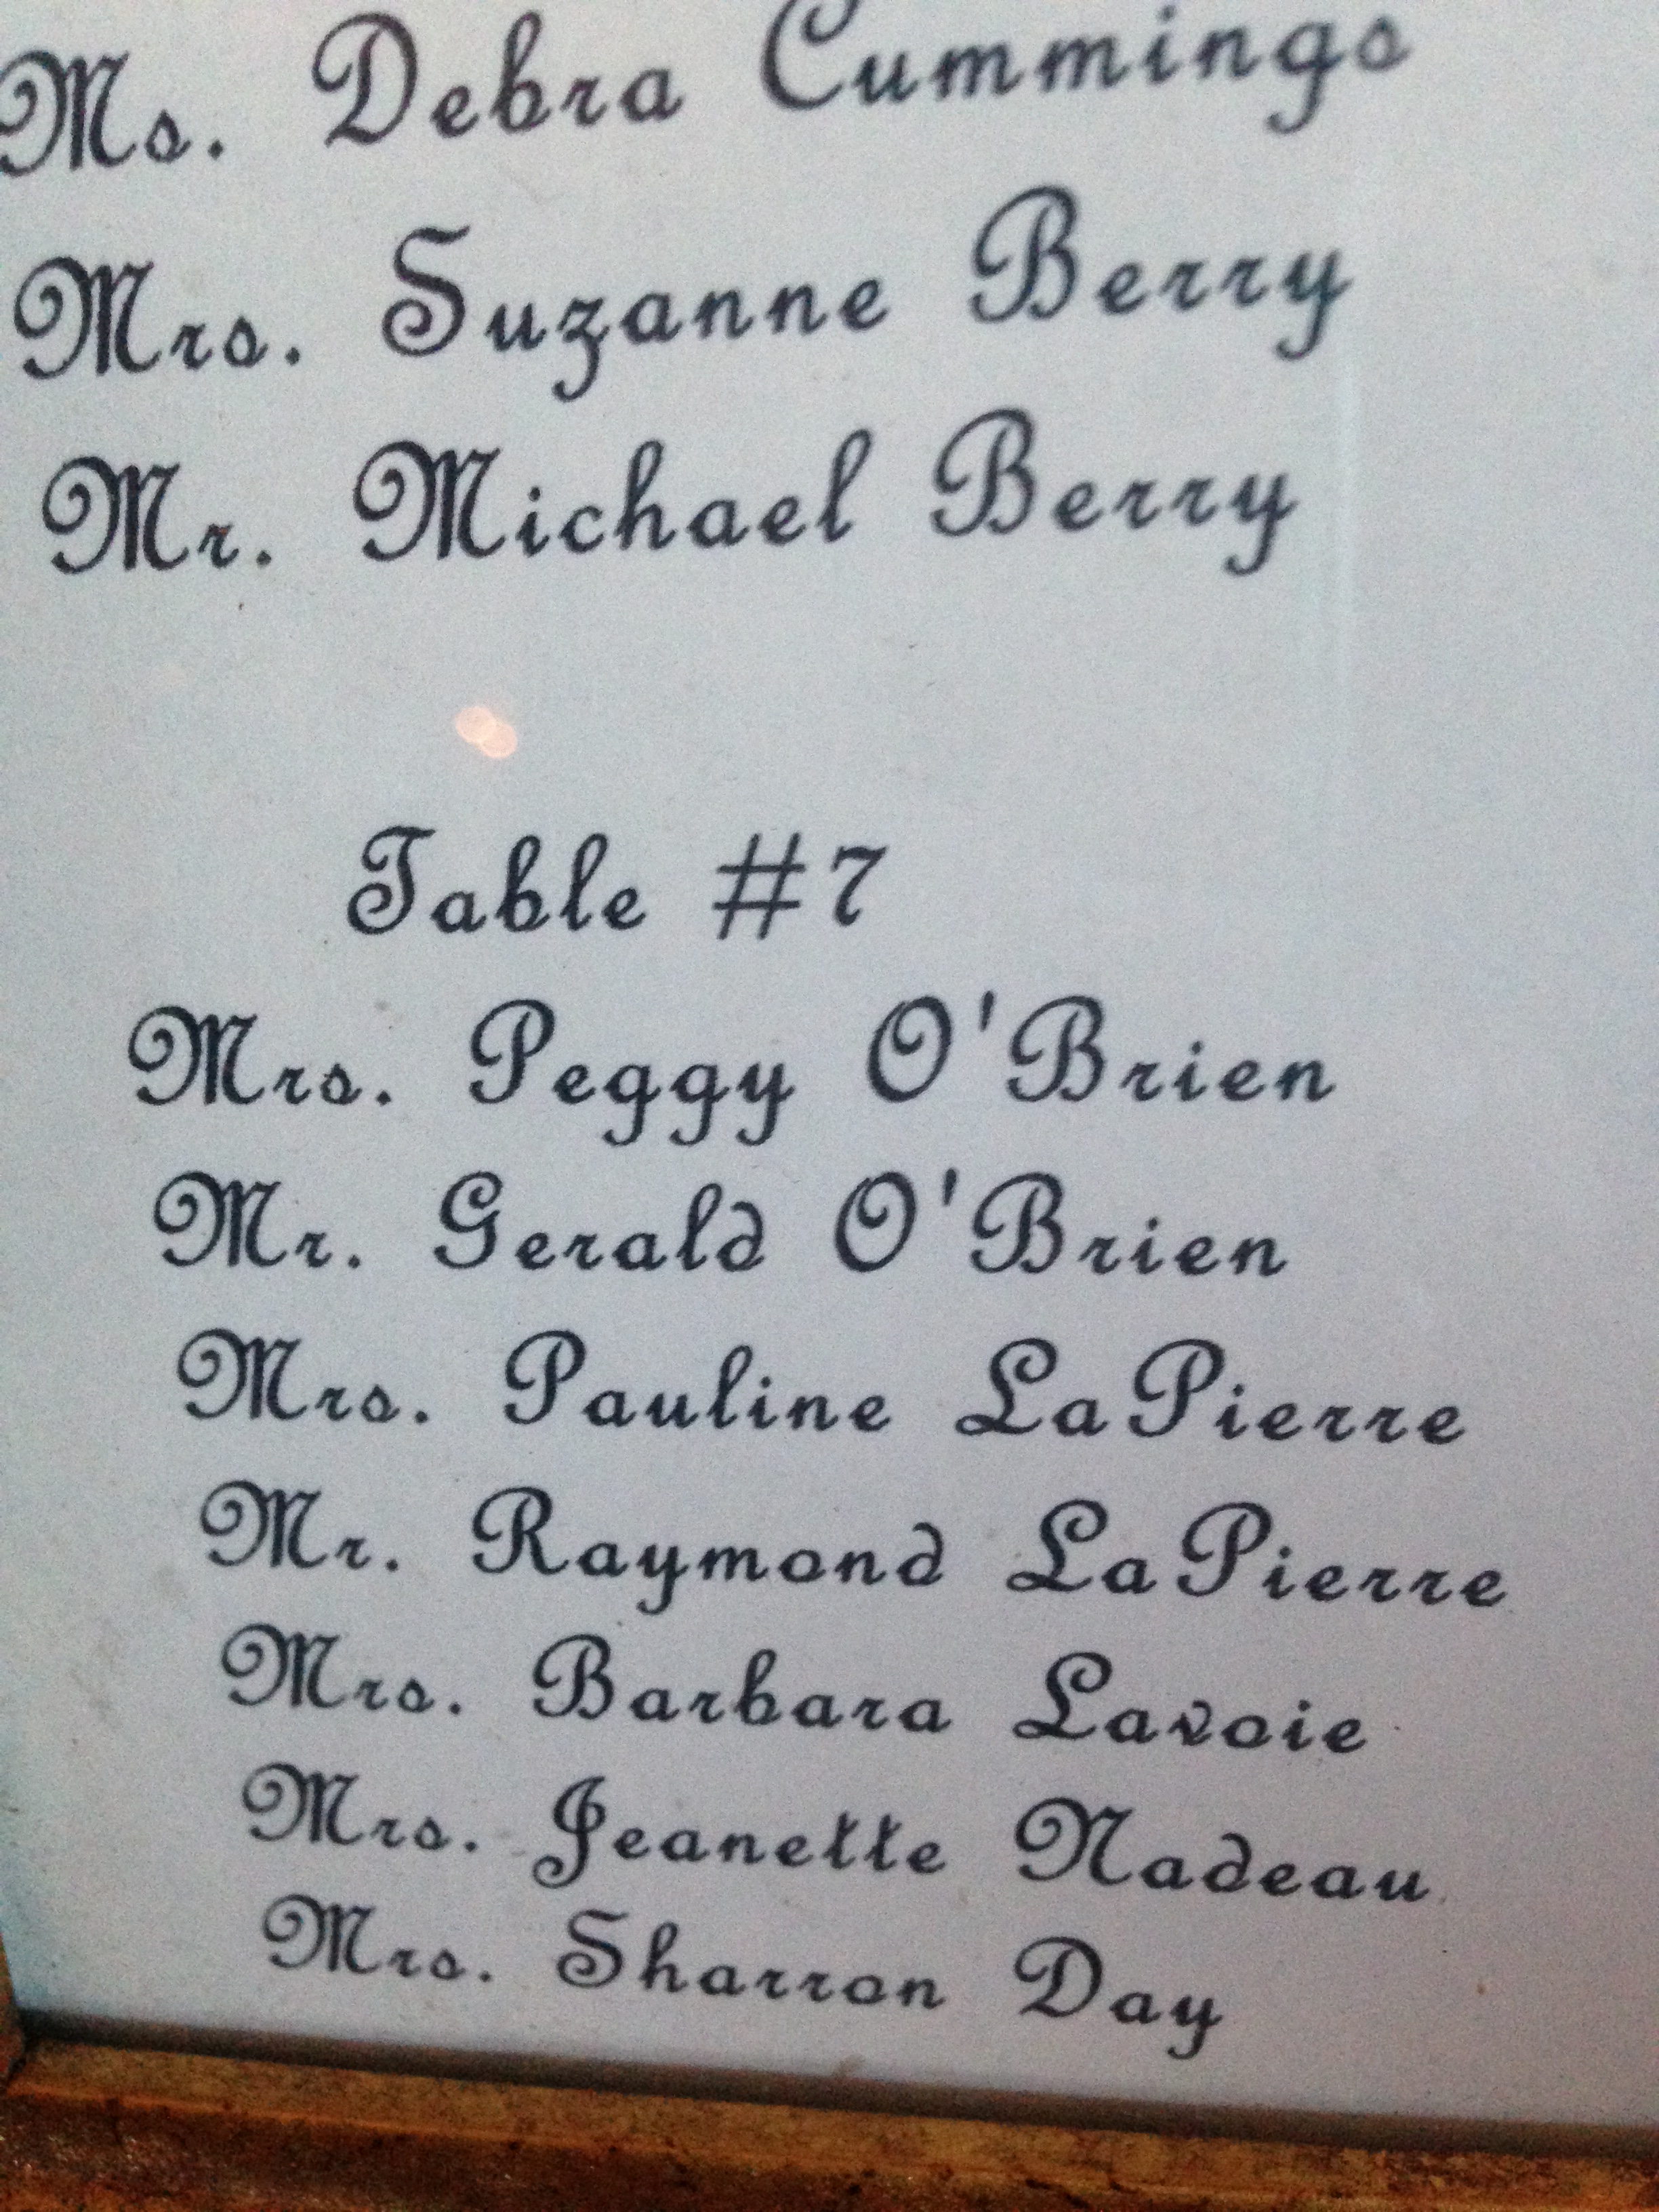 Ms. Debra Cummings
Mrs. Suzanne Berry
Mr. Michael Berry
Table #7
Mrs. Peggy O'Brien
Mr. Gerald O'Brien
Mrs. Pauline LaPierre
Mr. Raymond LaPierre
Mrs. Barbara Lavoie
Mrs. Jeanette Nadeau
Mrs. Sharron Day